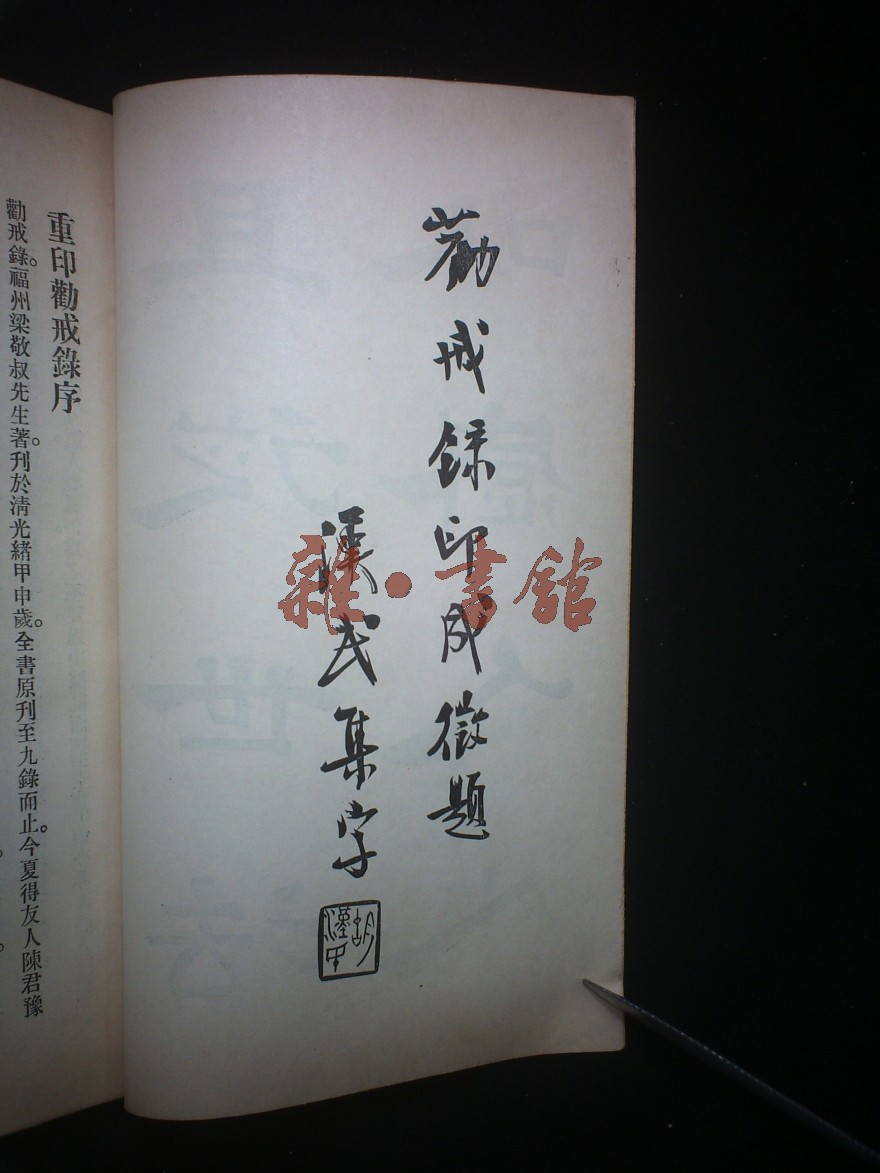 勸戒錄印成徵題
漢民集字
胡漢民
重印勸戒錄序
勸戒錄。福州梁敬叔先生著。刊於清光緒甲申歲。全書原刊至九錄而止。今夏得友人陳君豫
雜·書館